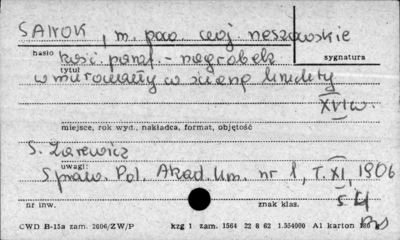 SANOK, m. pow. woj. rzeszowskie
hasło kość. paraf. - nagrobek sygnatura
tytuł
wmurowany w ścianę
XVI w.
miejsce, rok wyd., nakładca, format, objętość
S. Zarewicz
uwagi:
Spraw. Pol. Akad. Um. nr 1, T. XI, 1906
nr inw. znak klas.
CWD B-15a zam. 2006/ZW/P kzg 1 zam. 1564 22 8 62 1.554000 A1 karton